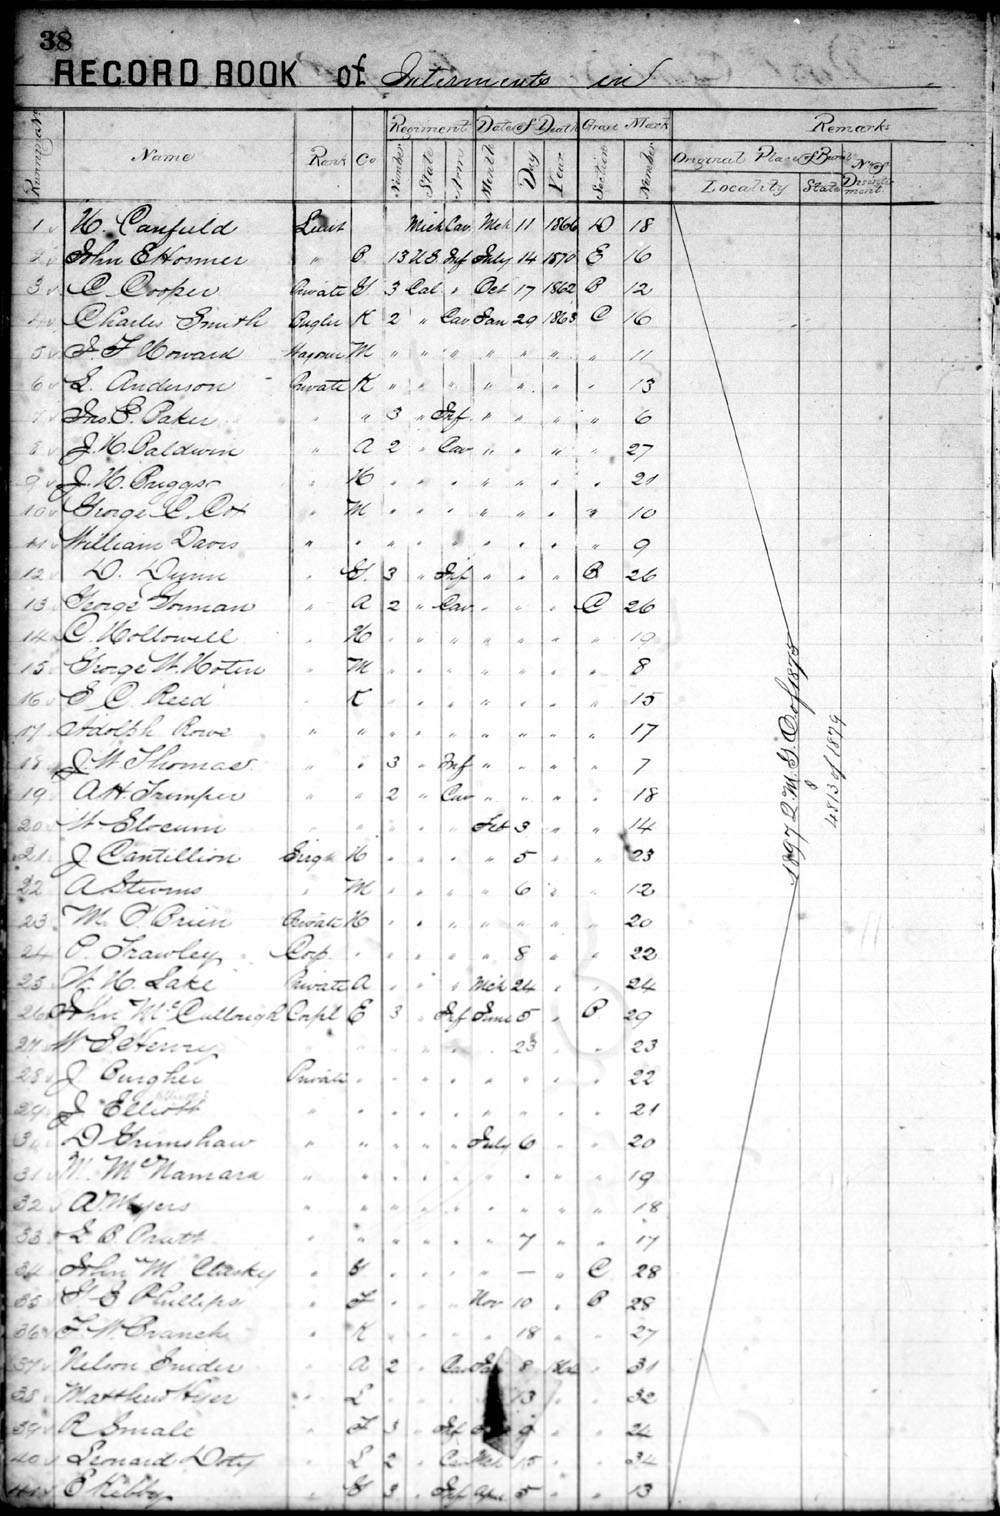 38
RECORD BOOK of Interments in
Regiment Date of Death Grave Mark Remarks
Running No. Name Rank Co Number State Arm Month Day Year Section Number Original Place of Burial No. of Disinterment
Locality State
1 H. Canfield Lieut Mich Cav Mch 11 1866 D 18
2 John E Hosmer " C. 13 U.S. Inf July 14 1870 E 16
3 C Cooper Private G 3 Cal " Oct 17 1862 B 12
4 Charles Smith Bugler K 2 " Cav Jan 29 1863 C 16
5 Howard Wagoner M " " " " " " " 11
6 L. Anderson Private K " " " " " " " 13
7 Jno. Baker " " 3 " Inf " " " " 6
8 J. H. Baldwin " A 2 " Cav " " " " 27
9 J. H. Briggs " H " " " " " " " 21
10 George C. Cox " M " " " " " " " 10
11 William Davis " " " " " " " " " 9
12 D. Dynn " G. 3 " Inf " " " B 26
13 George Gorman " A 2 " Cav " " " C 26
14 C. Hollowell " H " " " " " " " 19
15 George W. Hoten " M " " " " " " " 8
16 E C. Reed " K " " " " " " " 15
17 Adolph Rowe " " " " " " " " " 17
18 J. W Thomas " " 3 " Inf " " " " 7
19 A. H. Trimper " " 2 " Cav " " " " 18
20 W Slocum " " " " " Feb 3 " " 14
21 J Cantillion Sergt H " " " " 5 " " 23
22 A Stevens " M " " " " 6 " " 12
23 M. O'Brien Private H " " " " " " " 20
24 P. Frawley Corp. " " " " " 8 " " 22
25 W. H. Lake Private A " " " Mch 24 " " 24
26 John McCullough Corpl E 3 " Inf June 5 " B 29
27 W E Henry " " " " " " 23 " " 23
28 J Burgher Private " " " " " " " " 22
29 J Elliott " " " " " " " " " 21
30 D Grimshaw " " " " " July 6 " " 20
31 McNamara " " " " " " " " " 19
32 A Myers " " " " " " " " " 18
33 Pratt " " " " " " 7 " " 17
34 John M Clasky " G " " " " — " C 28
35 Phillips " F " " " Nov 10 " B 28
36 F. W. Branch " K " " " " 18 " " 27
37 Nelson Snider " A 2 " Cav Jan 8 1864 " 31
38 Matthew " L " " " " 13 " " 32
39 R Smale " F 3 " Inf 9 " " 24
40 Leonard Doty " L 2 " Cav Mch 15 " " 34
41 E Kibby " G 3 " Inf Apr 5 " " 13
1897 Q. M. G. O. of 1878
&
4813 of 1879